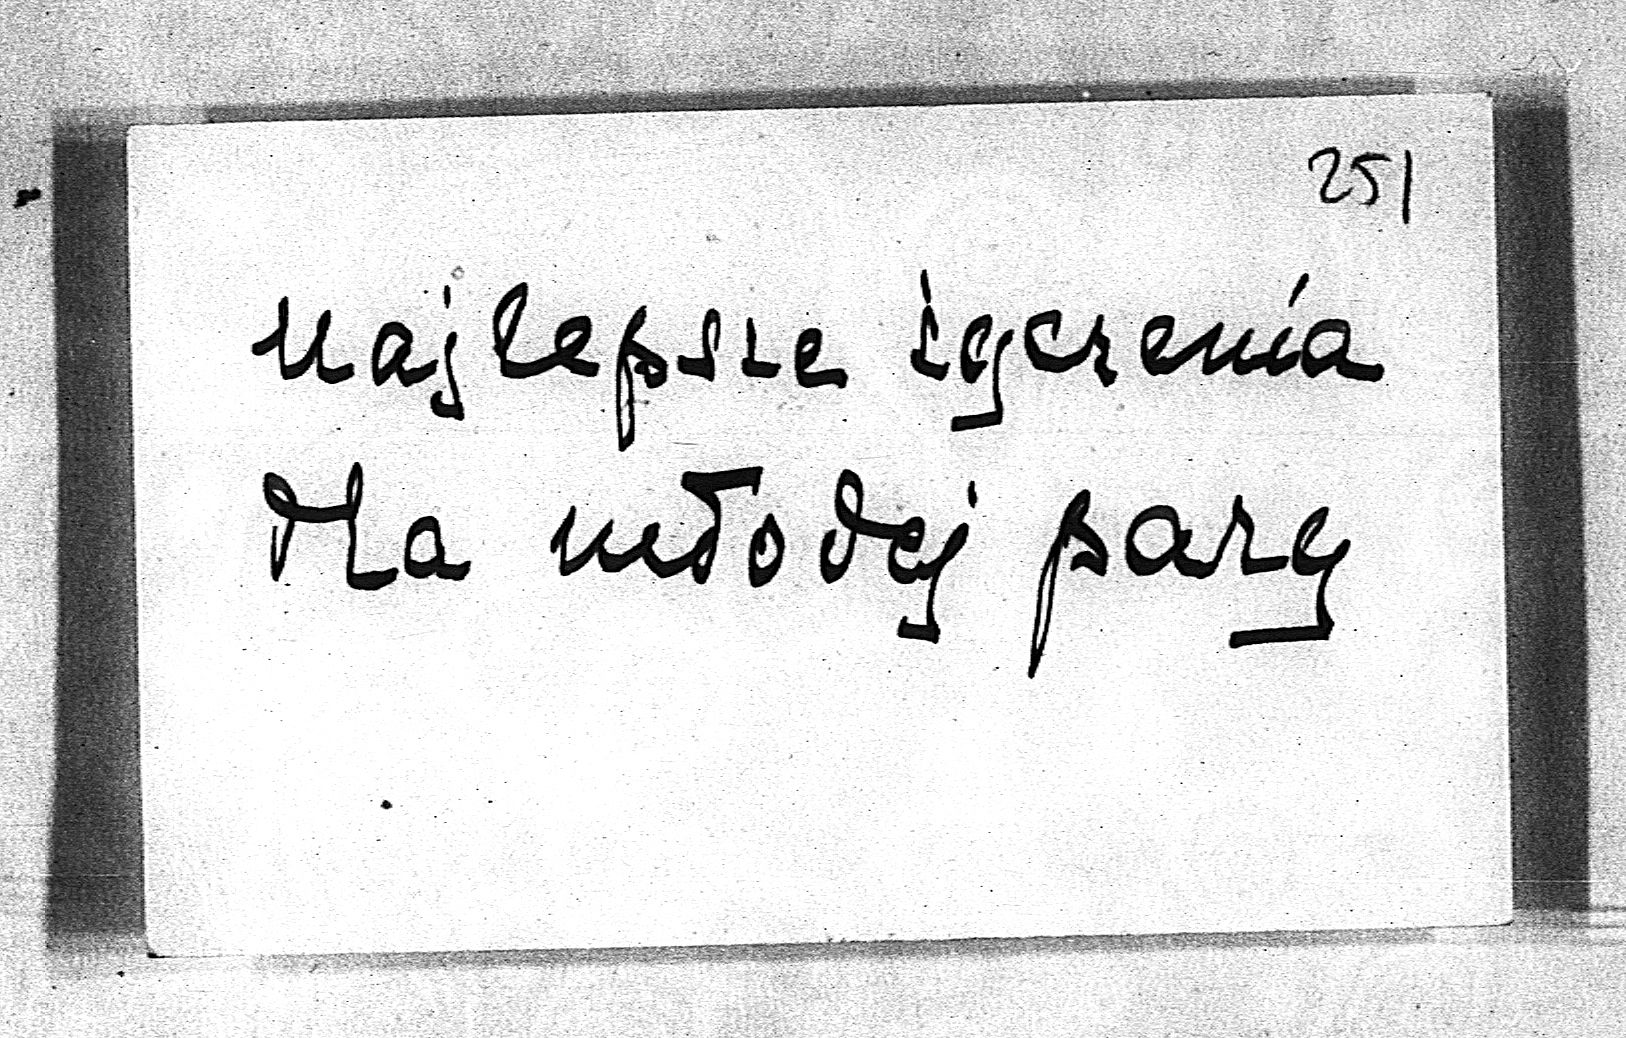 251
najlepsze życzenia
dla młodej pary